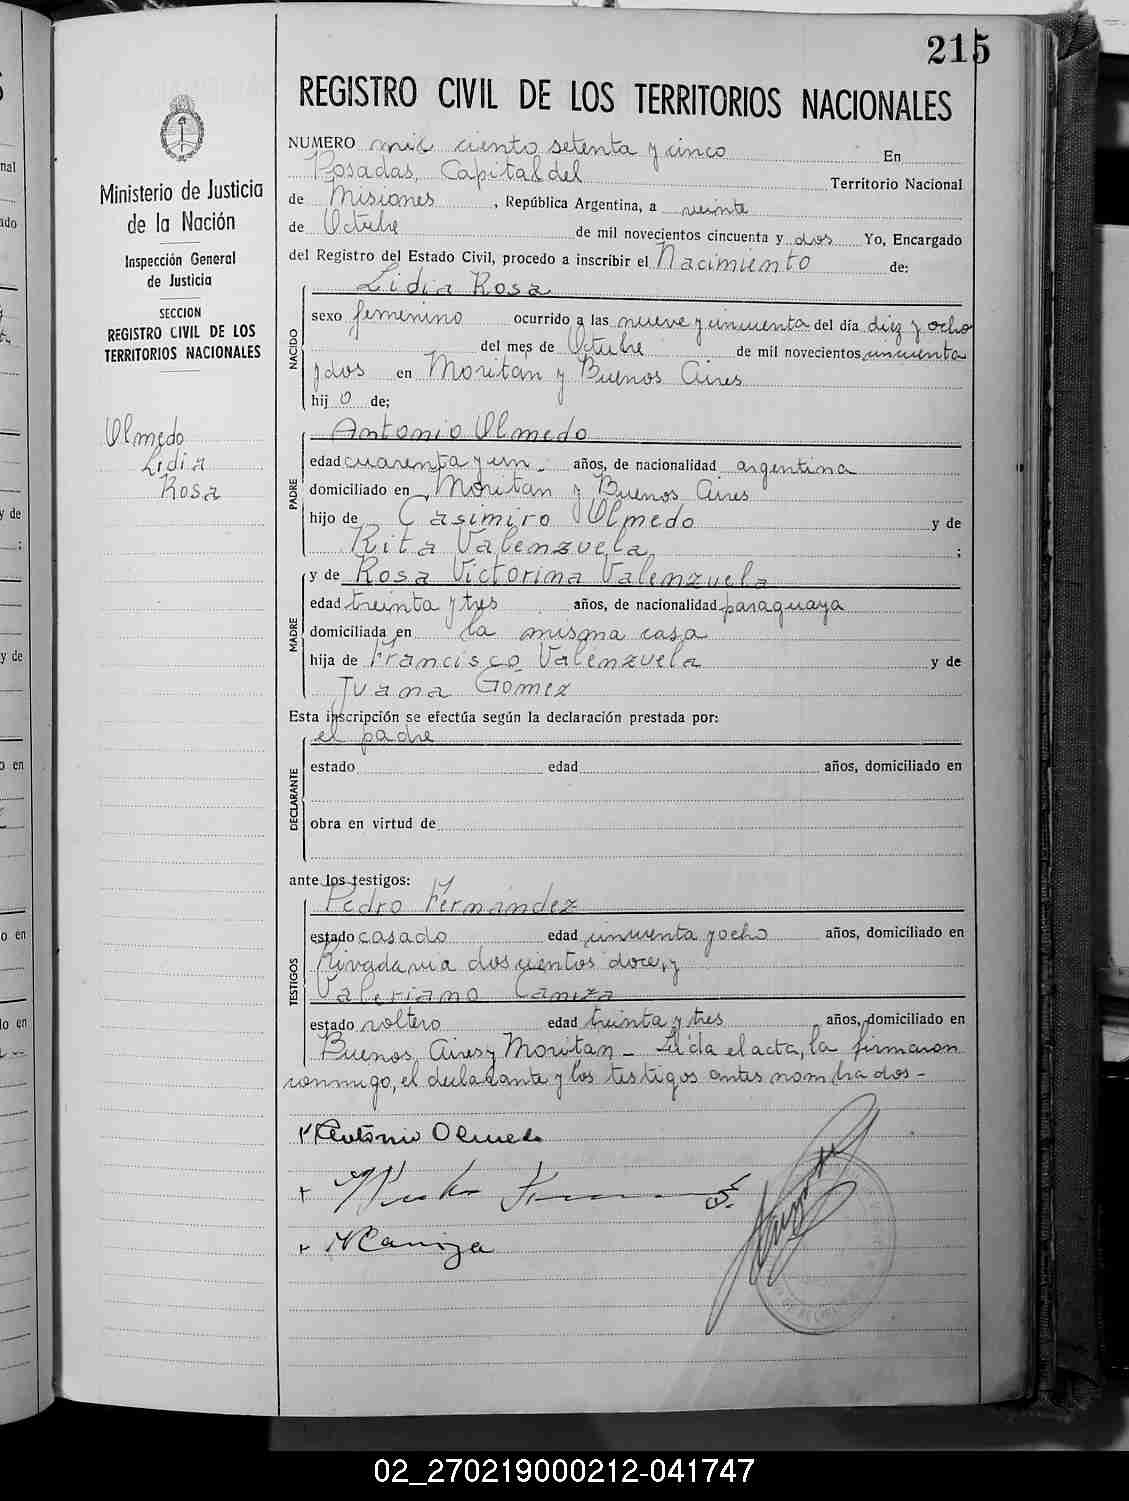 215
REGISTRO CIVIL DE LOS TERRITORIOS NACIONALES
Ministerio de Justicia
de la Nación
Inspección General
de Justicia
SECCION
REGISTRO CIVIL DE LOS
TERRITORIOS NACIONALES
Olmedo
Lidia
Rosa
NUMERO mil ciento setenta y cinco En
Posadas, Capital del Territorio Nacional
de Misiones, República Argentina, a veinte
de Octubre de mil novecientos cincuenta y dos Yo, Encargado
del Registro del Estado Civil, procedo a inscribir el Nacimiento de:
Lidia Rosa
NACIDO
sexo femenino ocurrido a las nueve y cincuenta del día diez y ocho
del mes de Octubre de mil novecientos cincuenta
y dos en Moritan y Buenos Aires
hij a de;
Antonio Olmedo
PADRE
edad cuarenta y un años, de nacionalidad argentina
domiciliado en Moritan y Buenos Aires
hijo de Casimiro Olmedo y de
Rita Valenzuela ;
y de Rosa Victorina Valenzuela
MADRE
edad treinta y tres años, de nacionalidad paraguaya
domiciliada en la misma casa
hija de Francisco Valenzuela y de
Juana Gomez
Esta inscripción se efectúa según la declaración prestada por:
el padre
DECLARANTE
estado edad años, domiciliado en
obra en virtud de
ante los testigos:
Pedro Fernández
TESTIGOS
estado casado edad cincuenta y ocho años, domiciliado en
Rivadavia doscientos doce, y
Valeriano Caniza
estado soltero edad treinta y tres años, domiciliado en
Buenos Aires y Moritan - Leida el acta, la firmaron
conmigo, el declarante y los testigos antes nombrados -
Antonio Olmedo
Caniza
02_270219000212-041747